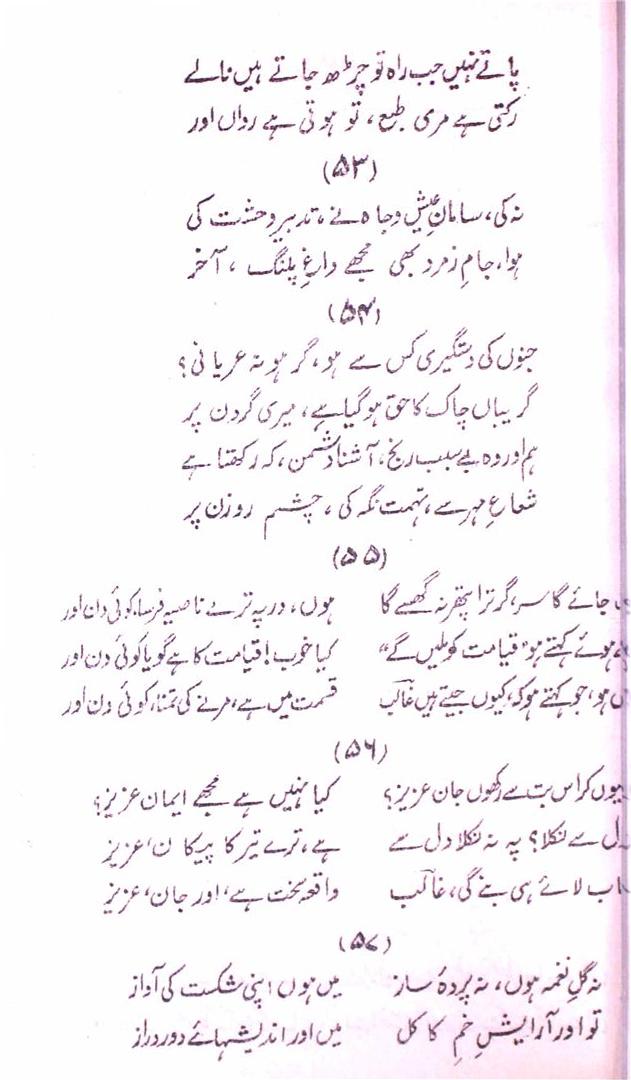 پاتے نہیں جب راہ تو چڑھ جاتے ہیں نالے
رکتی ہے مری طبع، تو ہوتی ہے رواں اور
(۵۳)
نہ کی، سامانِ عیش و جاہ نے، تدبیر وحشت کی
ہوا، جامِ زمرد بھی مجھے داغِ پلنگ، آخر
(۵۴)
جنوں کی دستگیری کس سے ہو، گر ہو نہ عریانی؟
گریباں چاک کا حق ہو گیا ہے، میری گردن پر
ہم اور وہ بے سبب رنج، آشنا دشمن، کہ رکھتا ہے
شعاعِ مہر سے، تہمت نگہ کی، چشم روزن پر
(۵۵)
جائے گا سر، گر ترا پتھر نہ گھسے گا ہوں، در پہ ترے ناصیہ فرسا، کوئی دن اور
ہوئے کہتے ہو "قیامت کو ملیں گے" کیا خوب! قیامت کا ہے گویا کوئی دن اور
ہو، جو کہتے ہو کہ، کیوں جیتے ہیں غالبؔ قسمت میں ہے، مرنے کی تمنا، کوئی دن اور
(۵۶)
کر اس بت سے رکھوں جان عزیز؟ کیا نہیں ہے مجھے ایمان عزیز؟
سے نکلا؟ پہ نہ نکلا دل سے ہے، ترے تیر کا پیکان، عزیز
لائے ہی بنے گی، غالبؔ واقعہ سخت ہے، اور جان، عزیز
(۵۷)
نہ گلِ نغمہ ہوں، نہ پردۂ ساز میں ہوں اپنی شکست کی آواز
تو اور آرایشِ خمِ کاکل میں اور اندیشہائے دور دراز